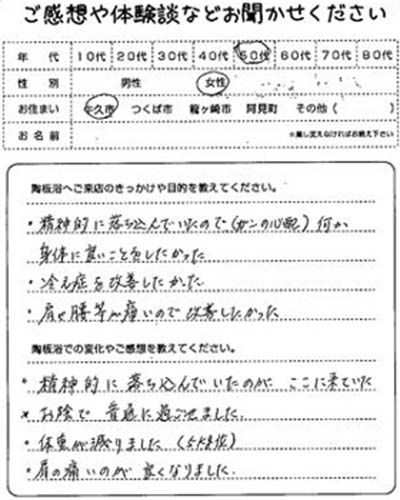 ご感想や体験談などお聞かせください
年代 10代 20代 30代 40代 50代 60代 70代 80代
性別 男性 女性
お住まい 牛久市 つくば市 龍ヶ崎市 阿見町 その他( )
お名前 ※差し支えなければお教え下さい
陶板浴へご来店のきっかけや目的を教えてください。
・精神的に落ち込んでいたので(ガンの心配)何か
身体に良いことをしたかった
・冷え症を改善したかった
・肩や腰等が痛いので改善したかった
陶板浴での変化やご感想を教えてください。
・精神的に落ち込んでいたのが ここに来ていた
お陰で 普通に過ごせました。
・体重が減りました(5K位)
・肩の痛いのが 良くなりました。